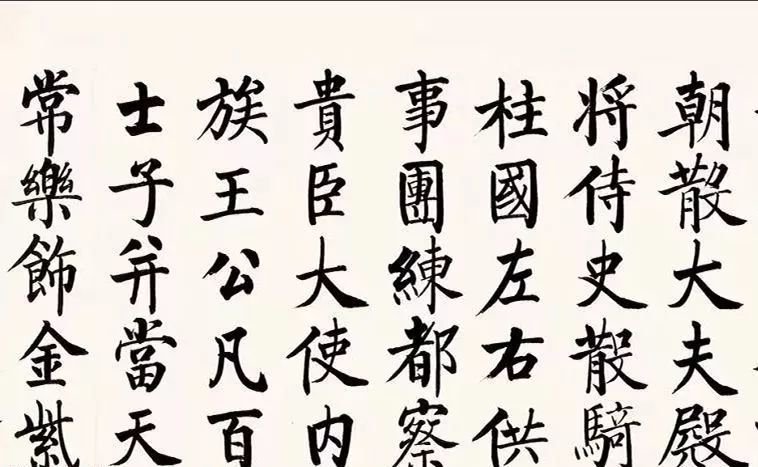 朝散大夫殿
將侍史散騎
柱國左右供
事團練都察
貴臣大使内
族王公凡百
士子并當天
常樂飾金紫